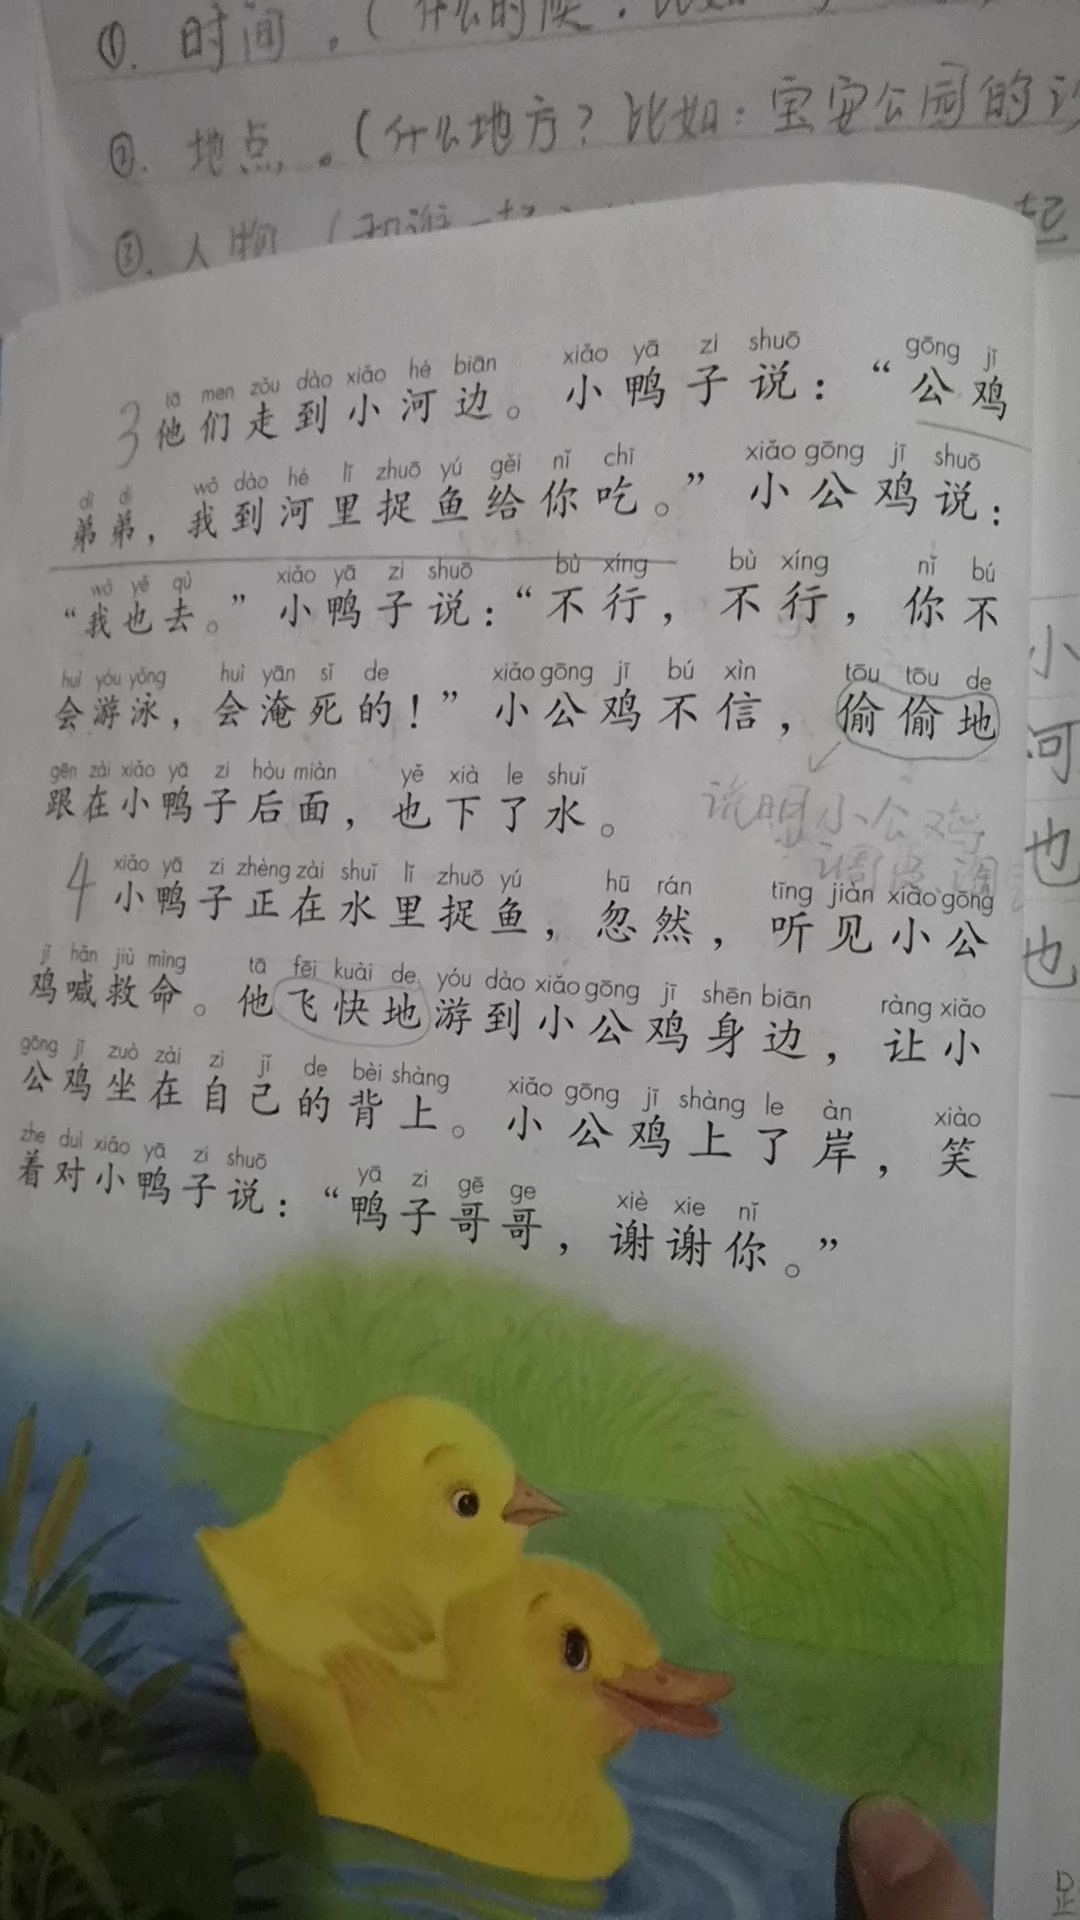 ①. 时间.(什么时候.比如
②. 地点.(什么地方?比如:宝安公园的
③. 人物(和谁一起
起
tā men zǒu dào xiǎo hé biān xiǎo yā zi shuō gōng jī
3 他们走到小河边。小鸭子说：“公鸡
dì di wǒ dào hé lǐ zhuō yú gěi nǐ chī xiǎo gōng jī shuō
弟弟，我到河里捉鱼给你吃。”小公鸡说：
wǒ yě qù xiǎo yā zi shuō bù xíng bù xíng nǐ bú
“我也去。”小鸭子说：“不行，不行，你不
huì yóu yǒng huì yān sǐ de xiǎo gōng jī bú xìn tōu tōu de
会游泳，会淹死的！”小公鸡不信，偷偷地
gēn zài xiǎo yā zi hòu miàn yě xià le shuǐ
跟在小鸭子后面，也下了水。
说明小公鸡
调皮
xiǎo yā zi zhèng zài shuǐ lǐ zhuō yú hū rán tīng jiàn xiǎo gōng
4 小鸭子正在水里捉鱼，忽然，听见小公
jī hǎn jiù mìng tā fēi kuài de yóu dào xiǎo gōng jī shēn biān ràng xiǎo
鸡喊救命。他飞快地游到小公鸡身边，让小
gōng jī zuò zài zì jǐ de bèi shàng xiǎo gōng jī shàng le àn xiào
公鸡坐在自己的背上。小公鸡上了岸，笑
zhe duì xiǎo yā zi shuō yā zi gē ge xiè xie nǐ
着对小鸭子说：“鸭子哥哥，谢谢你。”
小
河
也
也